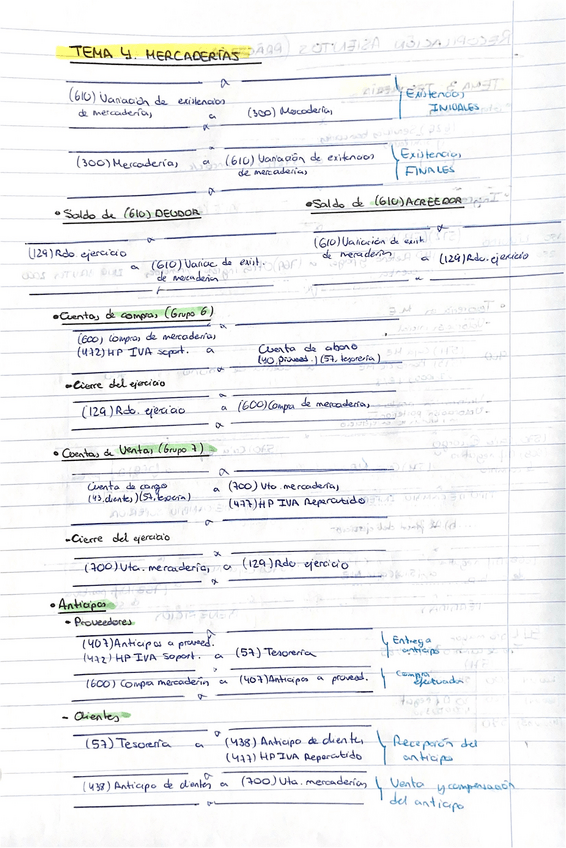 TEMA 4. MERCADERÍAS
a
(610) Variación de existencias
de mercaderías a (300) Mercaderías
Existencias
INICIALES
(300) Mercaderías a (610) Variación de existencias
de mercaderías
Existencias
FINALES
a
• Saldo de (610) DEUDOR
•Saldo de (610) ACREEDOR
(129) Rdo ejercicio
a (610) Variac. de exist.
de mercaderías
(610) Variación de exist.
de mercaderías a (129) Rdo. ejercicio
•Cuentas de compras (Grupo 6)
a
(600) Compras de mercaderías
(472) HP IVA soport. a Cuenta de abono
(40, proveed.) (57, tesorería)
•Cierre del ejercicio
(129) Rdo. ejercicio a (600) Compra de mercaderías
a
• Cuentas de Ventas (Grupo 7)
a
Cuenta de cargo
(43, clientes) (57, tesorería) a (700) Vta. mercaderías
(477) HP IVA Repercutido
a
-Cierre del ejercicio
(700) Vta. mercaderías a (129) Rdo ejercicio
• Anticipos
- Proveedores
(407) Anticipos a proveed.
(472) HP IVA Soport. a (57) Tesorería
Entrega
anticipo
(600) Compra mercaderías a (407) Anticipos a proveed.
Compra
efectuada
- Clientes
(57) Tesorería a (438) Anticipo de clientes
(477) HP IVA Repercutido
Recepción del
anticipo
(438) Anticipo de clientes a (700) Vta. mercaderías
Venta y compensación
del anticipo